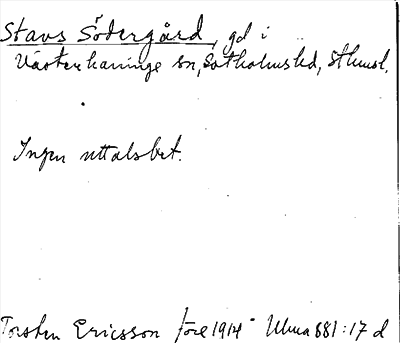 Stavs Södergård, gd i
Västerhaninge sn, Sotholms hd, Sthmsl.
Ingen uttalsbet.
Torsten Ericsson före 1914 Ulma 881:17 d